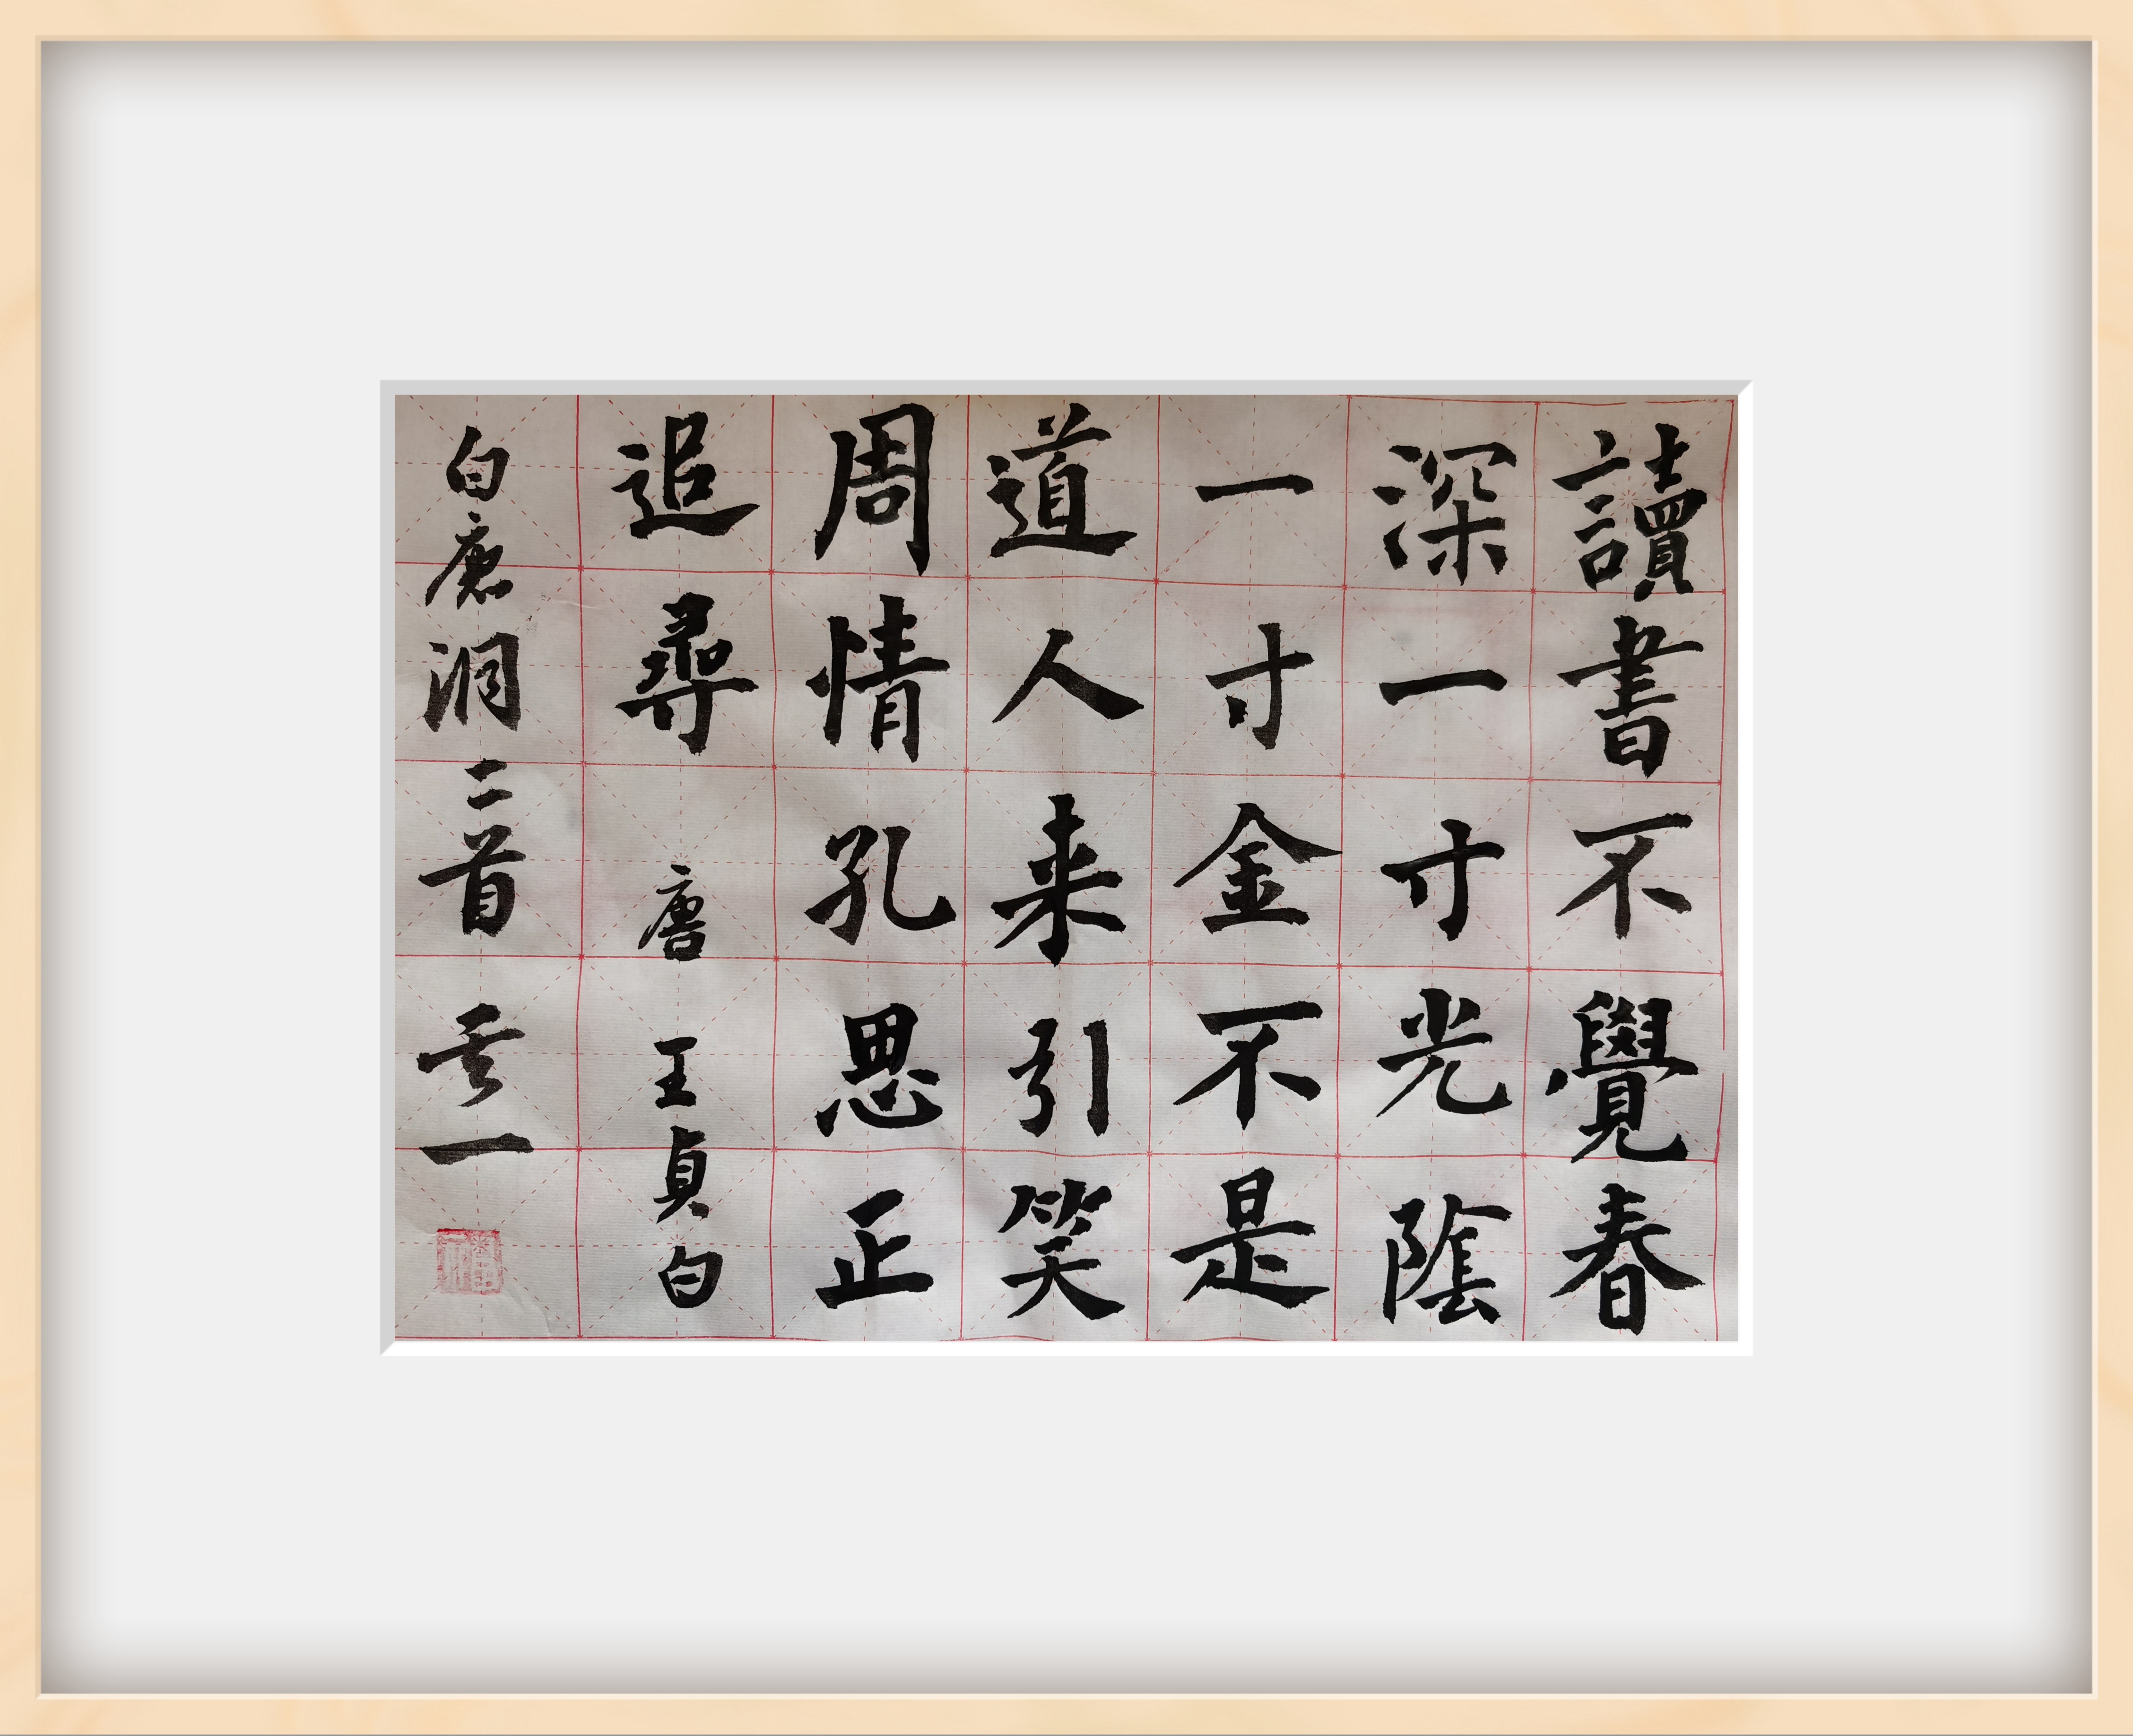 讀書不覺春
深一寸光陰
一寸金不是
道人来引笑
周情孔思正
追尋 唐 王貞白
白鹿洞二首 其一